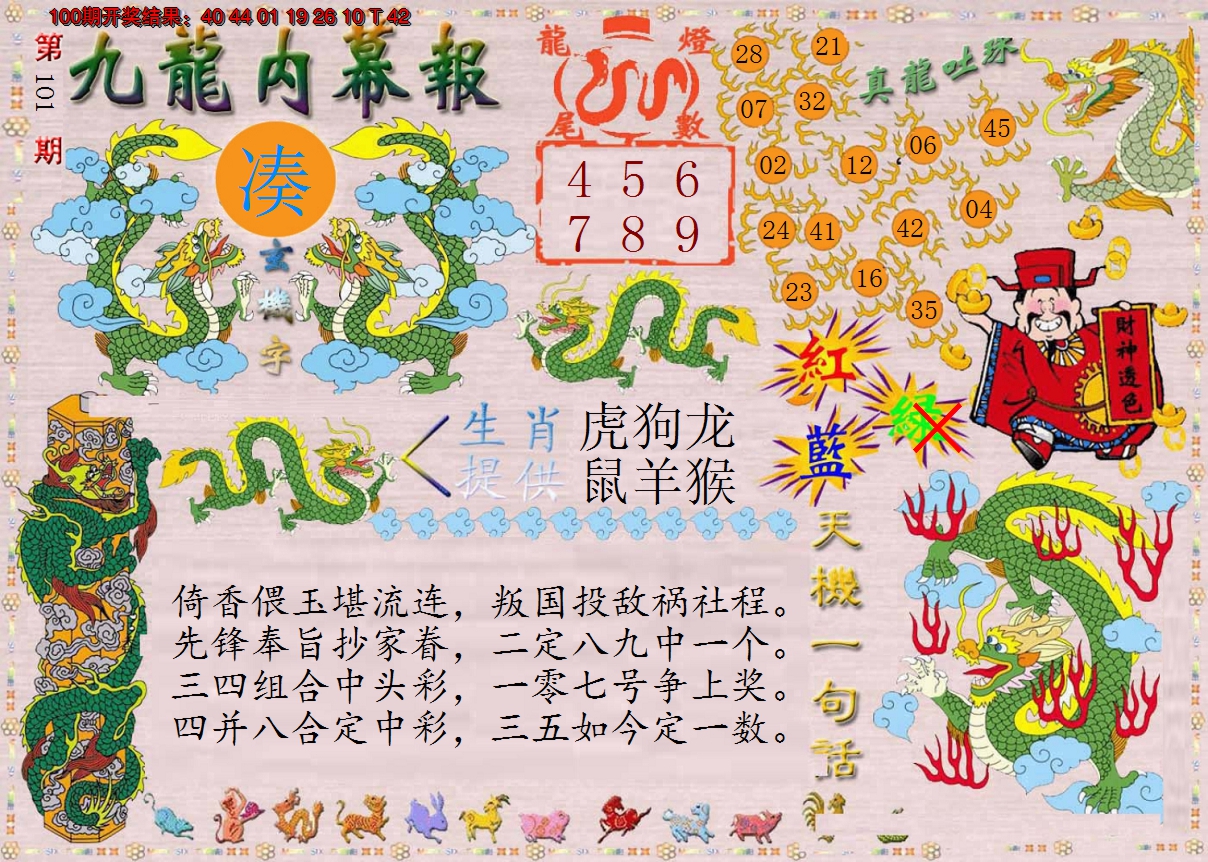 100期开奖结果：40 44 01 19 26 10 T 42
第101期
九龍内幕報
凑
玄機字
龍燈
尾數
4 5 6
7 8 9
真龍吐珠
28 21
07 32
02 12 06 45
24 41 42 04
23 16 35
紅
綠
藍
財神透色
生肖提供
虎狗龙
鼠羊猴
天機一句話
倚香偎玉堪流连，叛国投敌祸社程。
先锋奉旨抄家眷，二定八九中一个。
三四组合中头彩，一零七号争上奖。
四并八合定中彩，三五如今定一数。